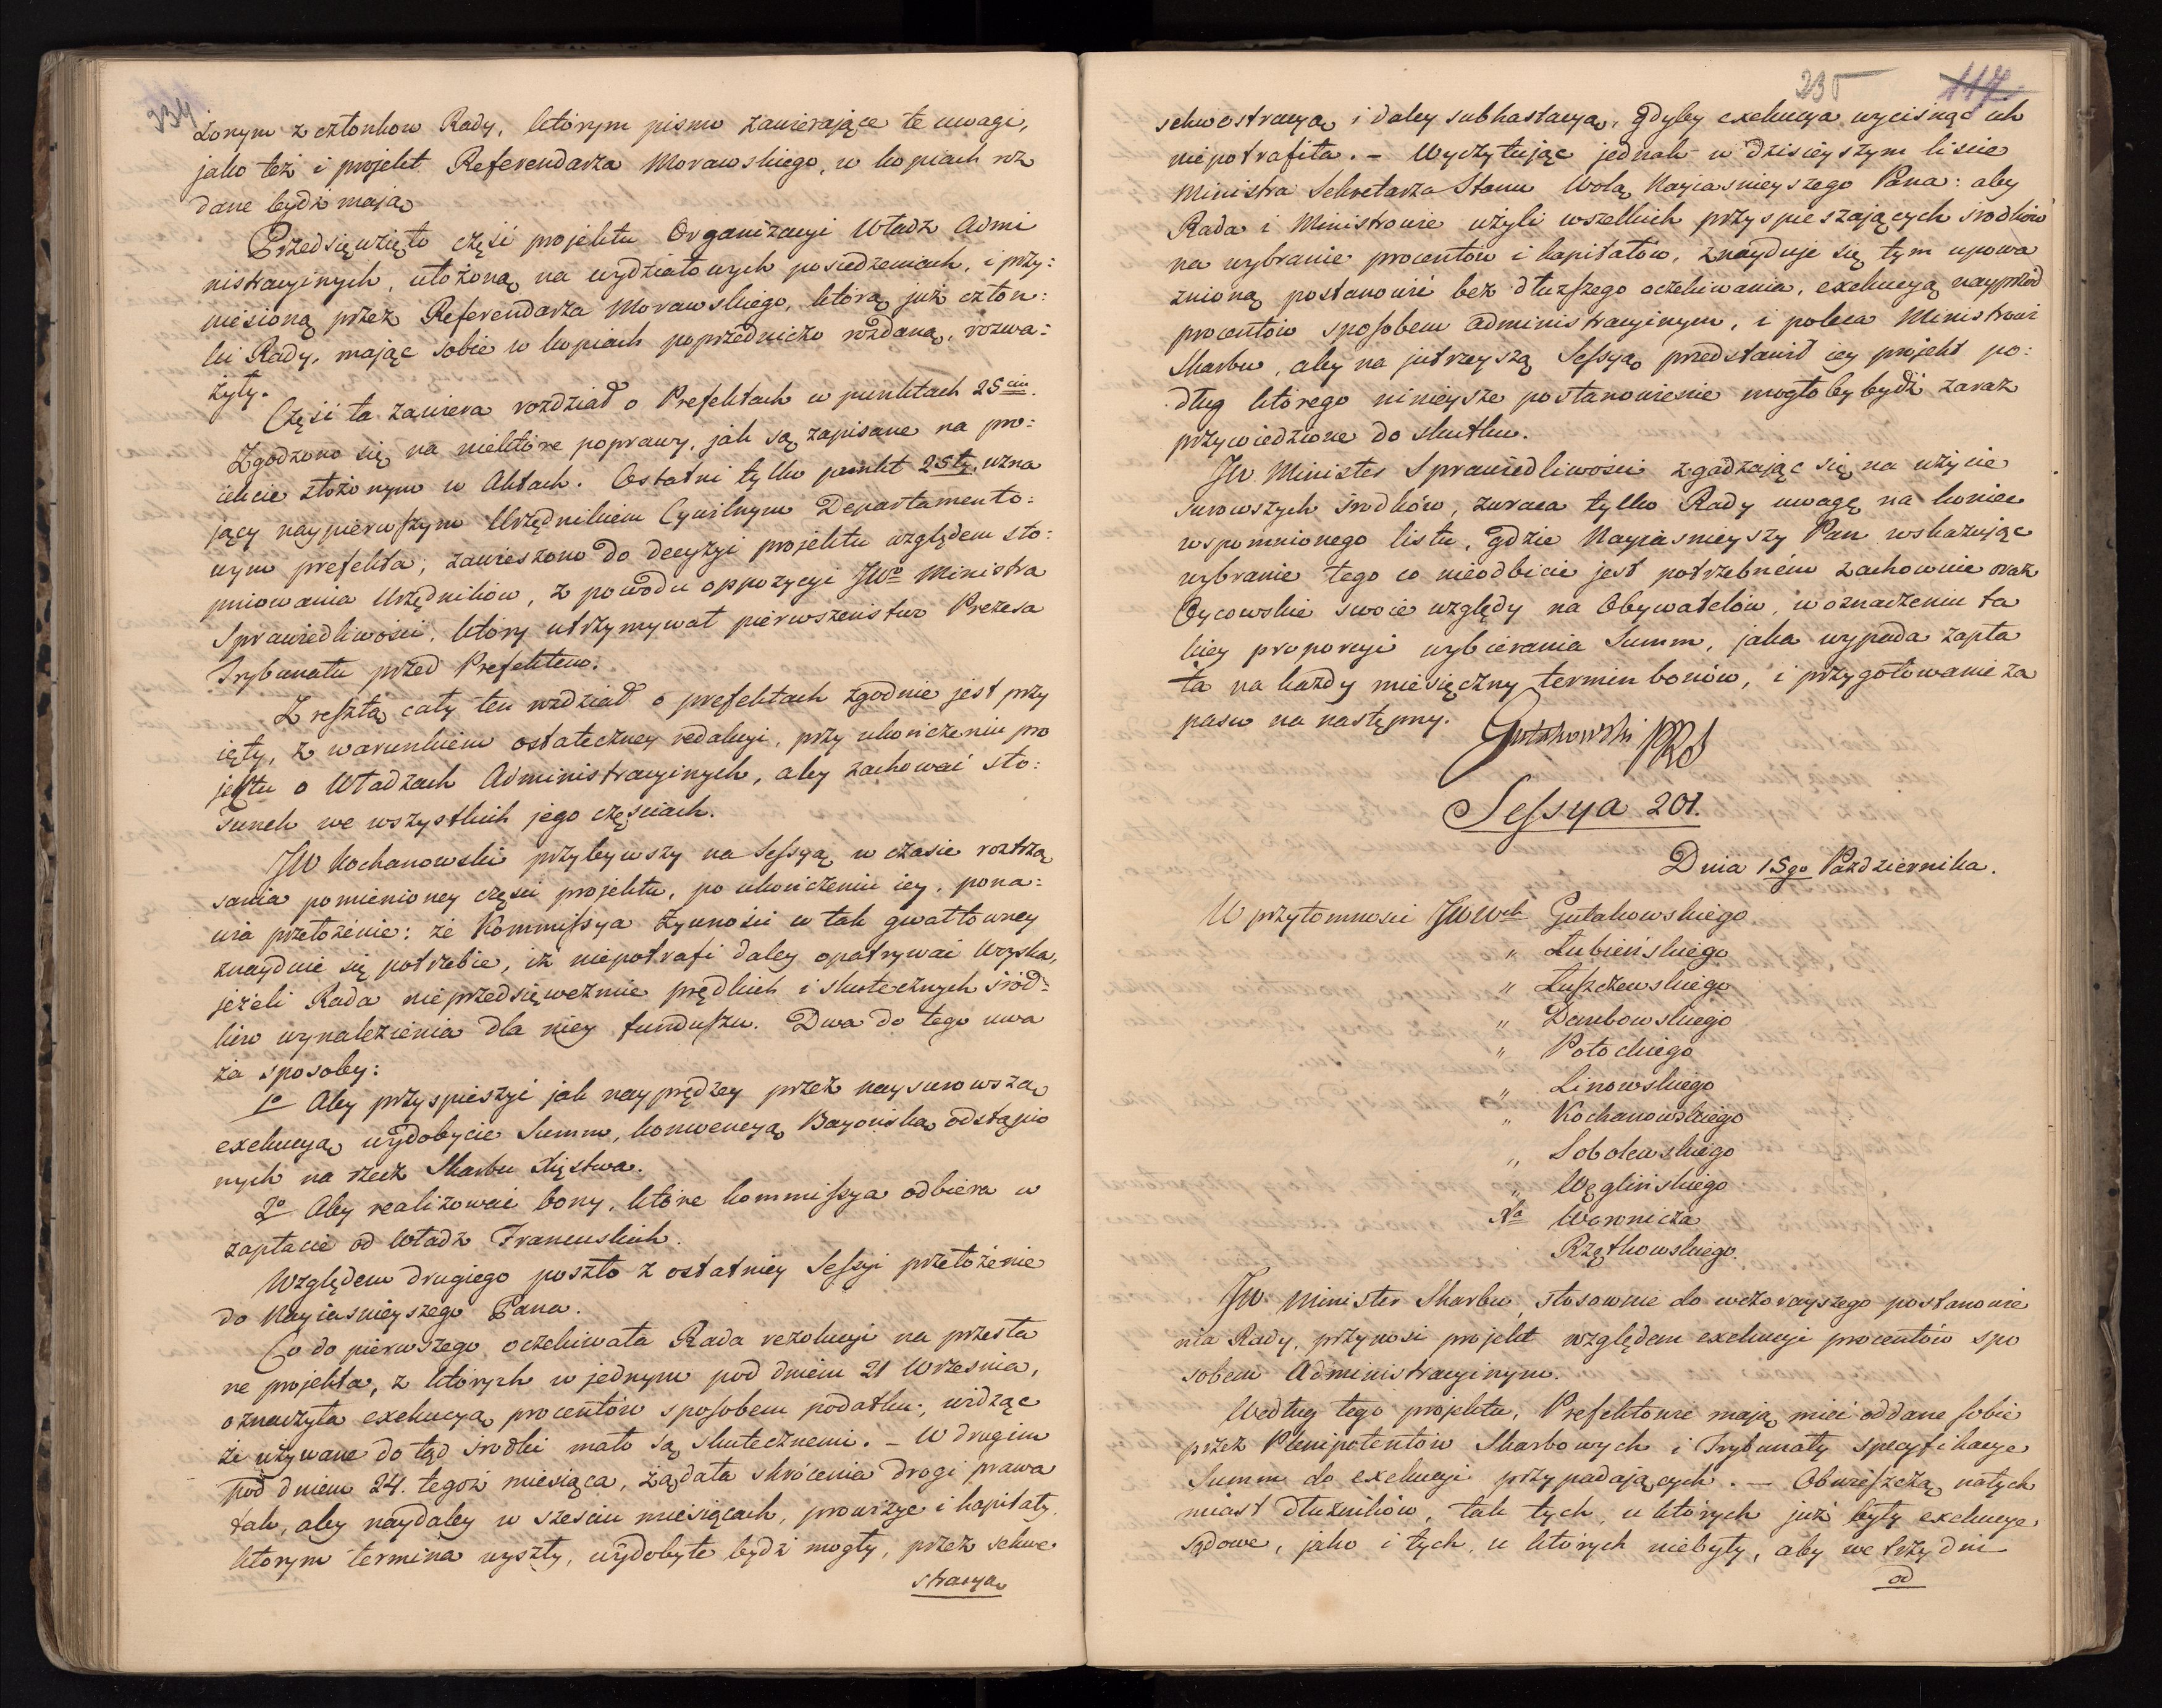 234
żonym z członkow Rady, którym pismo zawierające te uwagi,
jako też i projekt Referendarza Morawskiego, w kopiach roz
dane bydź mają
Przedsięwzięto część projektu Organizacyi Władz Admi
nistracyinych, ułożoną na wydziałowych posiedzeniach, i przy:
niesioną przez Referendarza Morawskiego, którą już człon:
ki Rady, mając sobie w kopiach poprzedniczo rozdaną, rozwa:
żyły.
Część ta zawiera rozdział o Prefektach w punktach 25ciu.
Zgodzono się na niektóre poprawy, jak są zapisane na pro:
iekcie złożonym w Aktach. Ostatni tylko punkt 25ty, uzna
jący naypierwszym Urzędnikiem Cywilnym Departamento:
wym prefekta, zawieszono do decyzyi projektu względem sto:
pniowania Urzędników, z powodu oppozycyi JWo Ministra
Sprawiedliwości, który utrzymywał pierwszeństwo Prezesa
Trybunału przed Prefektem.
Z resztą cały ten rozdział o prefektach zgodnie jest przy
ięty, z warunkiem ostateczney redakcyi, przy ukończeniu pro
jektu o Władzach Administracyinych, aby zachować sto:
sunek we wszystkich jego częściach.
JW Kochanowski przybywszy na Sessyą w czasie roztrzą
sania pomienioney części projektu, po ukończeniu iey, pona:
wia przełożenie: że Kommissya żywności w tak gwałtowney
znayduie się potrzebie, iż niepotrafi daley opatrywać Woyska,
jeżeli Rada nieprzedsięweźmie prędkich i skutecznych środ:
ków wynalezienia dla niey funduszu. Dwa do tego uwa
ża sposoby:
1o Aby przyspieszyć jak nayprędzey przez naysurowszą
exekucyą wydobycie Summ, konwencyą Bayońską odstąpio
nych na rzecz Skarbu Xięstwa.
2o Aby realizować bony, które kommissya odbiera w
zapłacie od Władz Francuskich.
Względem drugiego poszło z ostatniey Sessyi przełożenie
do Nayiaśnieyszego Pana.
Co do pierwszego oczekiwała Rada rezolucyi na przesła
ne projekta, z których w jednym pod dniem 21 Września,
oznaczyła exekucyą procentów sposobem podatku, widząc
że używane do tąd środki mało są skutecznemi. – W drugim
pod dniem 24. tegoż miesiąca, żądała skrócenia drogi prawa
tak, aby naydaley w sześciu miesiącach, prowizye i kapitały,
którym termina wyszły, wydobyte bydź mogły, przez sekwe
stracyą
235 117.
sekwestracyą i daley subhastacyą, gdyby exekucya wycisnąć ich
niepotrafiła. – Wyczytując jednak w dzisieyszym liście
Ministra Sekretarza Stanu Wolą Nayiaśnieyszego Pana: aby
Rada i Ministrowie użyli wszelkich przyspieszających środków
na wybranie procentów i kapitałów, znayduje się tym upowa
żnioną postanowić bez dłuższego oczekiwania, exekucyą nayprzód
procentów sposobem administracyinym, i poleca Ministrowi
Skarbu, aby na jutrzeyszą Sessyą przedstawił iey projekt po:
dług którego ninieysze postanowienie mogłoby bydź zaraz
przywiedzione do skutku.
JW. Minister Sprawiedliwości zgadzając się na użycie
surowszych środków, zwraca tylko Rady uwagę na koniec
wspomnionego listu, gdzie Nayiaśnieyszy Pan wskazując
wybranie tego co nieodbicie jest potrzebném zachowuie oraz
Oycowskie swoie względy na Obywatelów, w oznaczeniu ta
kiey proporcyi wybierania Summ, jaka wypada zapła
ta na każdy miesięczny termin bonów, i przygotowanie za
pasu na następny. Gutakowski PRS
Sessya 201.
Dnia 15go Października.
W przytomności JWWch Gutakowskiego
" Łubieńskiego
" Łuszczewskiego
" Dembowskiego
" Potockiego
" Linowskiego
" Kochanowskiego
" Sobolewskiego
" Węglińskiego
Xa Woronicza
Rzętkowskiego.
JW. Minister Skarbu, stosownie do wczorayszego postanowie
nia Rady, przynosi projekt względem exekucyi procentów spo
sobem Administracyinym.
Według tego projektu, Prefektowie mają mieć oddane sobie
przez Plenipotentów Skarbowych i Trybunały specyfikacye
Summ do exekucyi przypadających. – Obwieszczą natych
miast dłużników, tak tych, u których już były exekucye
sądowe, jako i tych, u których niebyły, aby we trzy dni
od